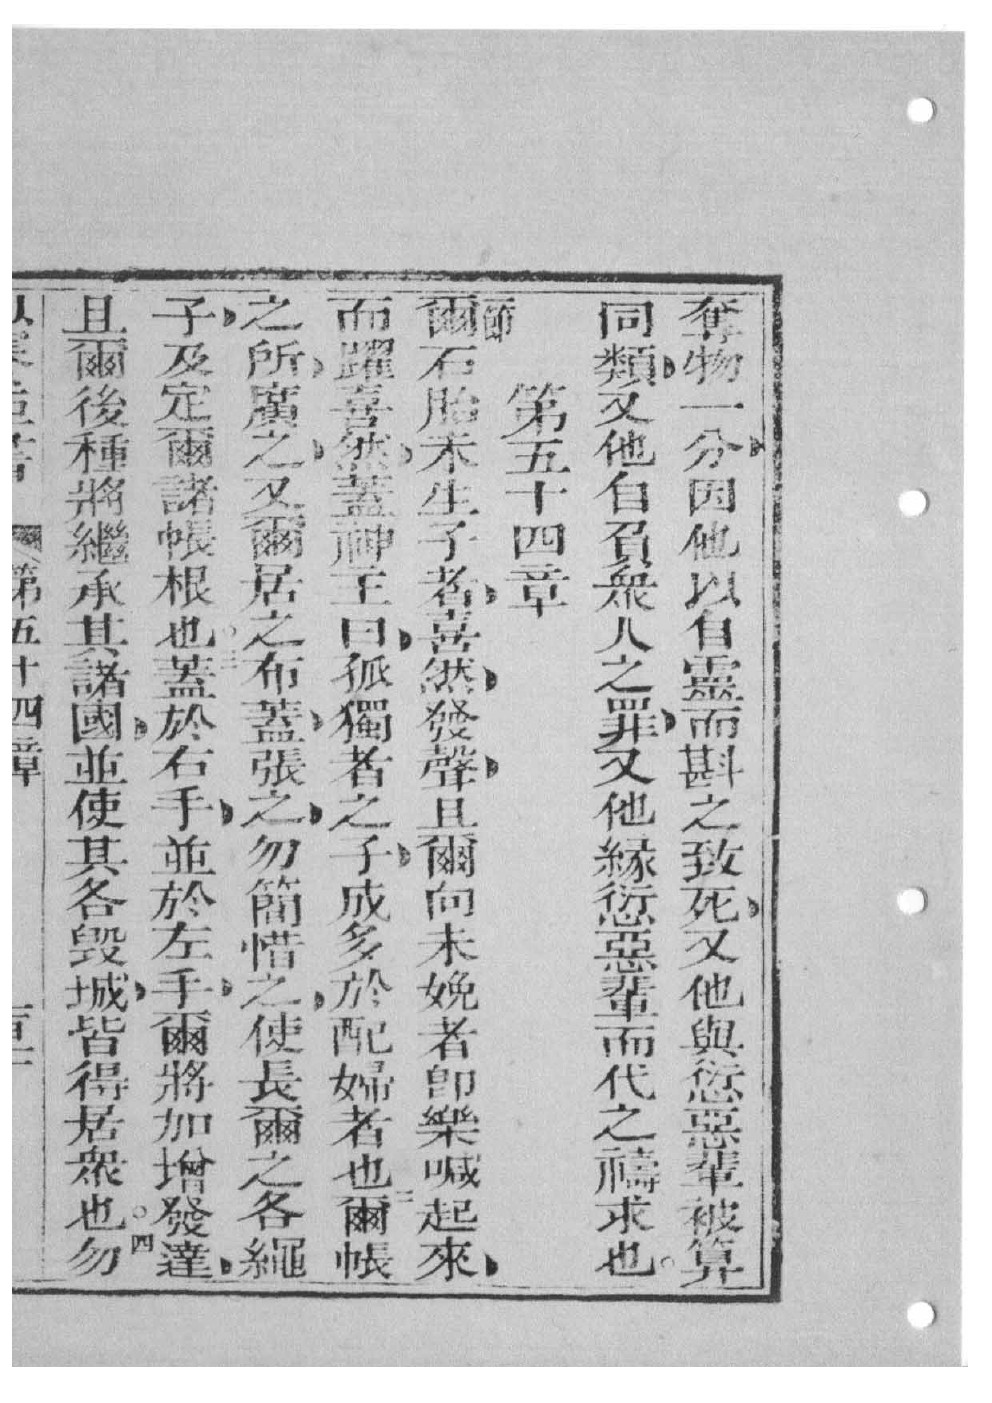 奪物一分因他以自靈而斟之致死又他與愆惡輩被算
同類又他自負衆人之罪又他緣愆惡輩而代之禱求也。
第五十四章
一節爾石胎未生子者喜然發聲且爾向未娩者卽樂喊起來
而躍喜然蓋神主曰孤獨者之子成多於配婦者也二爾帳
之所廣之又爾居之布蓋張之勿簡惜之使長爾之各繩
子及定爾諸帳根也。三蓋於右手並於左手爾將加增發達
且爾後種將繼承其諸國並使其各毀城皆得居衆也。四勿
第五十四章